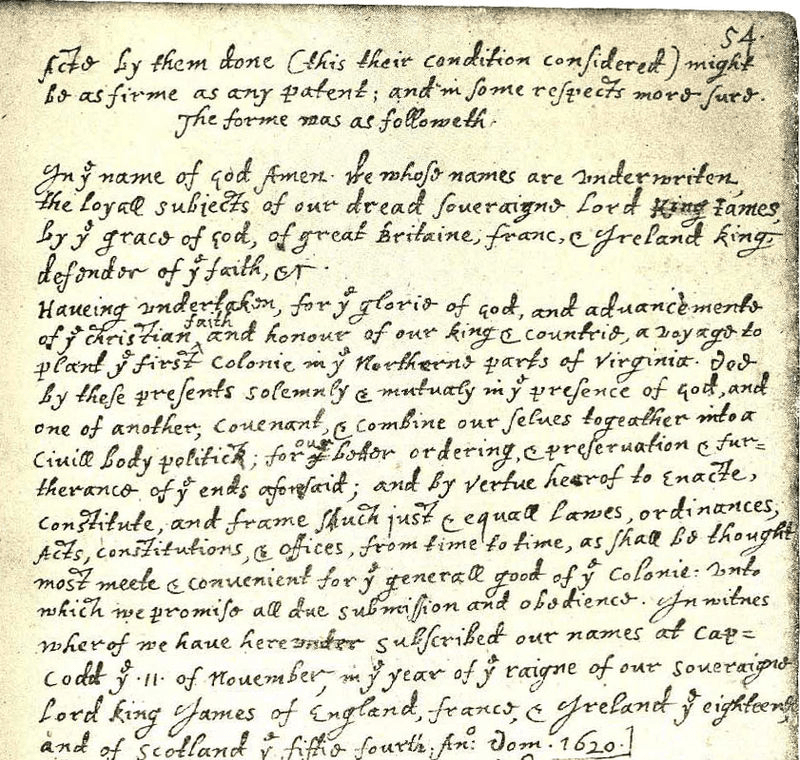 54.
Acts by them done (this their condition considered) might
be as firme as any patent; and in some respects more sure.
The forme was as followeth.
In yᵉ name of god Amen. We whose names are underwriten,
the loyall subjects of our dread soveraigne Lord King James,
by yᵉ grace of god, of great Britaine, franc, & Ireland king,
defender of yᵉ faith, &c.
Haveing undertaken, for yᵉ glorie of god, and advancemente
of yᵉ christian faith and honour of our king & countrie, a voyage to
plant yᵉ first colonie in yᵉ Northerne parts of Virginia. Doe
by these presents solemnly & mutualy in yᵉ presence of god, and
one of another, covenant, & combine our selves togeather into a
Civill body politick; for our better ordering, & preservation & fur=
therance of yᵉ ends aforesaid; and by vertue hearof to Enacte,
constitute, and frame shuch just & equall Lawes, ordinances,
Acts, constitutions, & offices, from time to time, as shall be thought
most meete & convenient for yᵉ generall good of yᵉ Colonie: unto
which we promise all due submission and obedience. In witnes
wherof we have hereunder subscribed our names at Cap=
Codd yᵉ .11. of November, in yᵉ year of yᵉ raigne of our soveraigne
Lord king James of England, france, & Ireland yᵉ eighteenth,
and of Scotland yᵉ fiftie fourth. An°: Dom. 1620.]